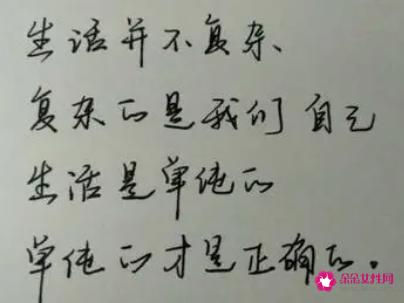 生活并不复杂、
复杂的是我们自己
生活是单纯的
单纯的才是正确的。
朵朵女性网